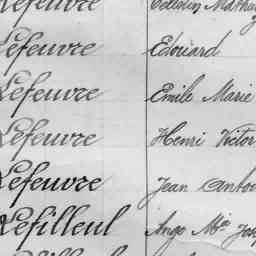 Lefeuvre Célestin
Lefeuvre Edouard
Lefeuvre Emile Marie
Lefeuvre Henri Victor
Lefeuvre Jean
Lefilleul Ange Mie